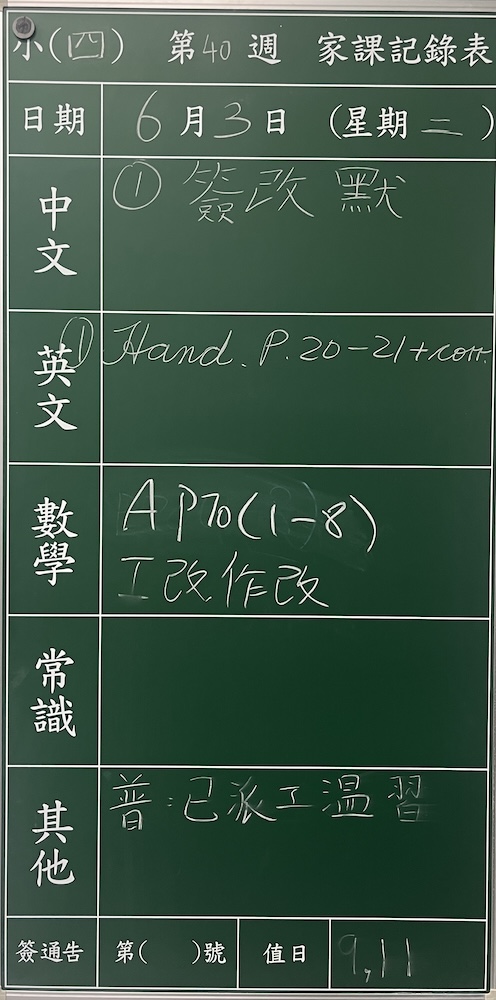 小(四) 第40週 家課記錄表
日期 6月3日 (星期二)
中文 ① 簽改 默
英文 ① Hand. P.20-21+corr.
數學 A P70(1-8)
工改作改
常識
其他 普:已派工溫習
簽通告 第( )號 值日 9,11